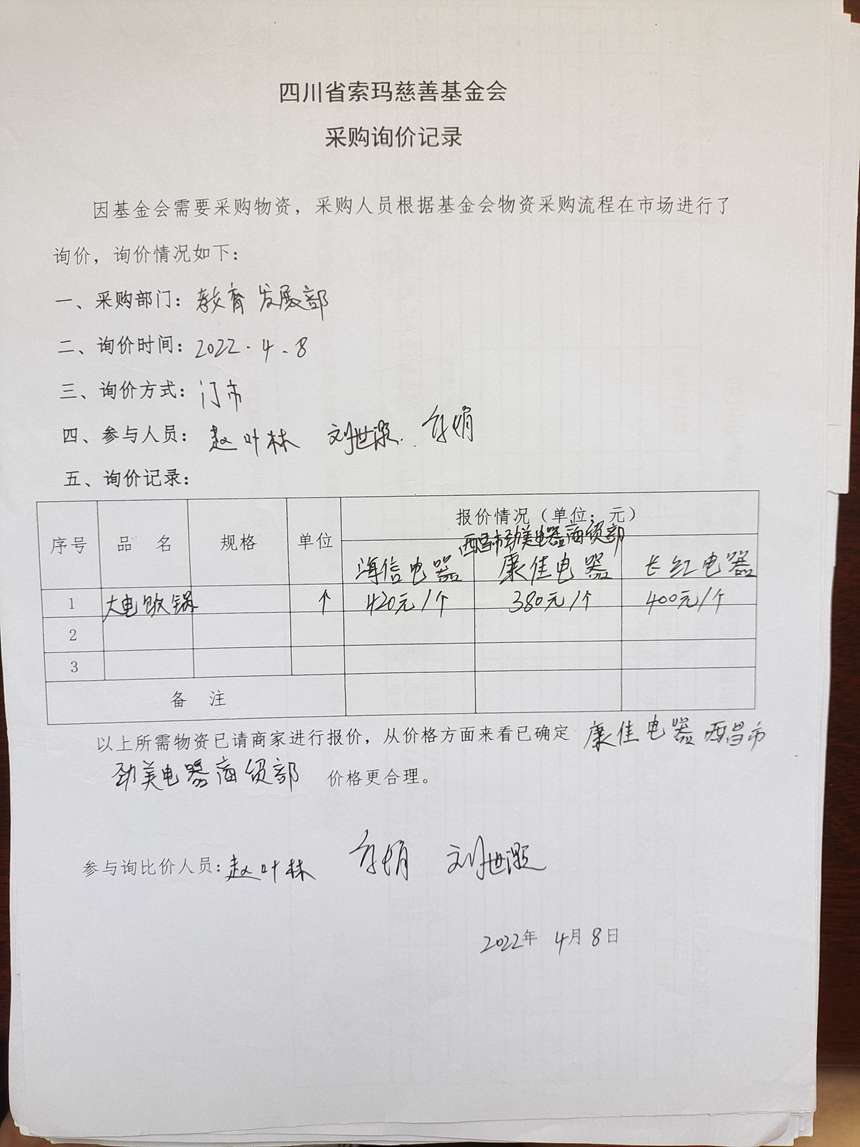 四川省索玛慈善基金会
采购询价记录
因基金会需要采购物资，采购人员根据基金会物资采购流程在市场进行了
询价，询价情况如下：
一、采购部门：教育发展部
二、询价时间：2022.4.8
三、询价方式：门市
四、参与人员：赵叶林 刘世源
五、询价记录：
序号 品 名 规格 单位 报价情况（单位：元）
西昌市劲美电器商贸部
海信电器 康佳电器 长虹电器
1 大电饭锅 个 420元/个 380元/个 400元/个
2
3
备 注
以上所需物资已请商家进行报价，从价格方面来看已确定 康佳电器西昌市
劲美电器商贸部 价格更合理。
参与询比价人员：赵叶林 刘世源
2022年 4月 8日